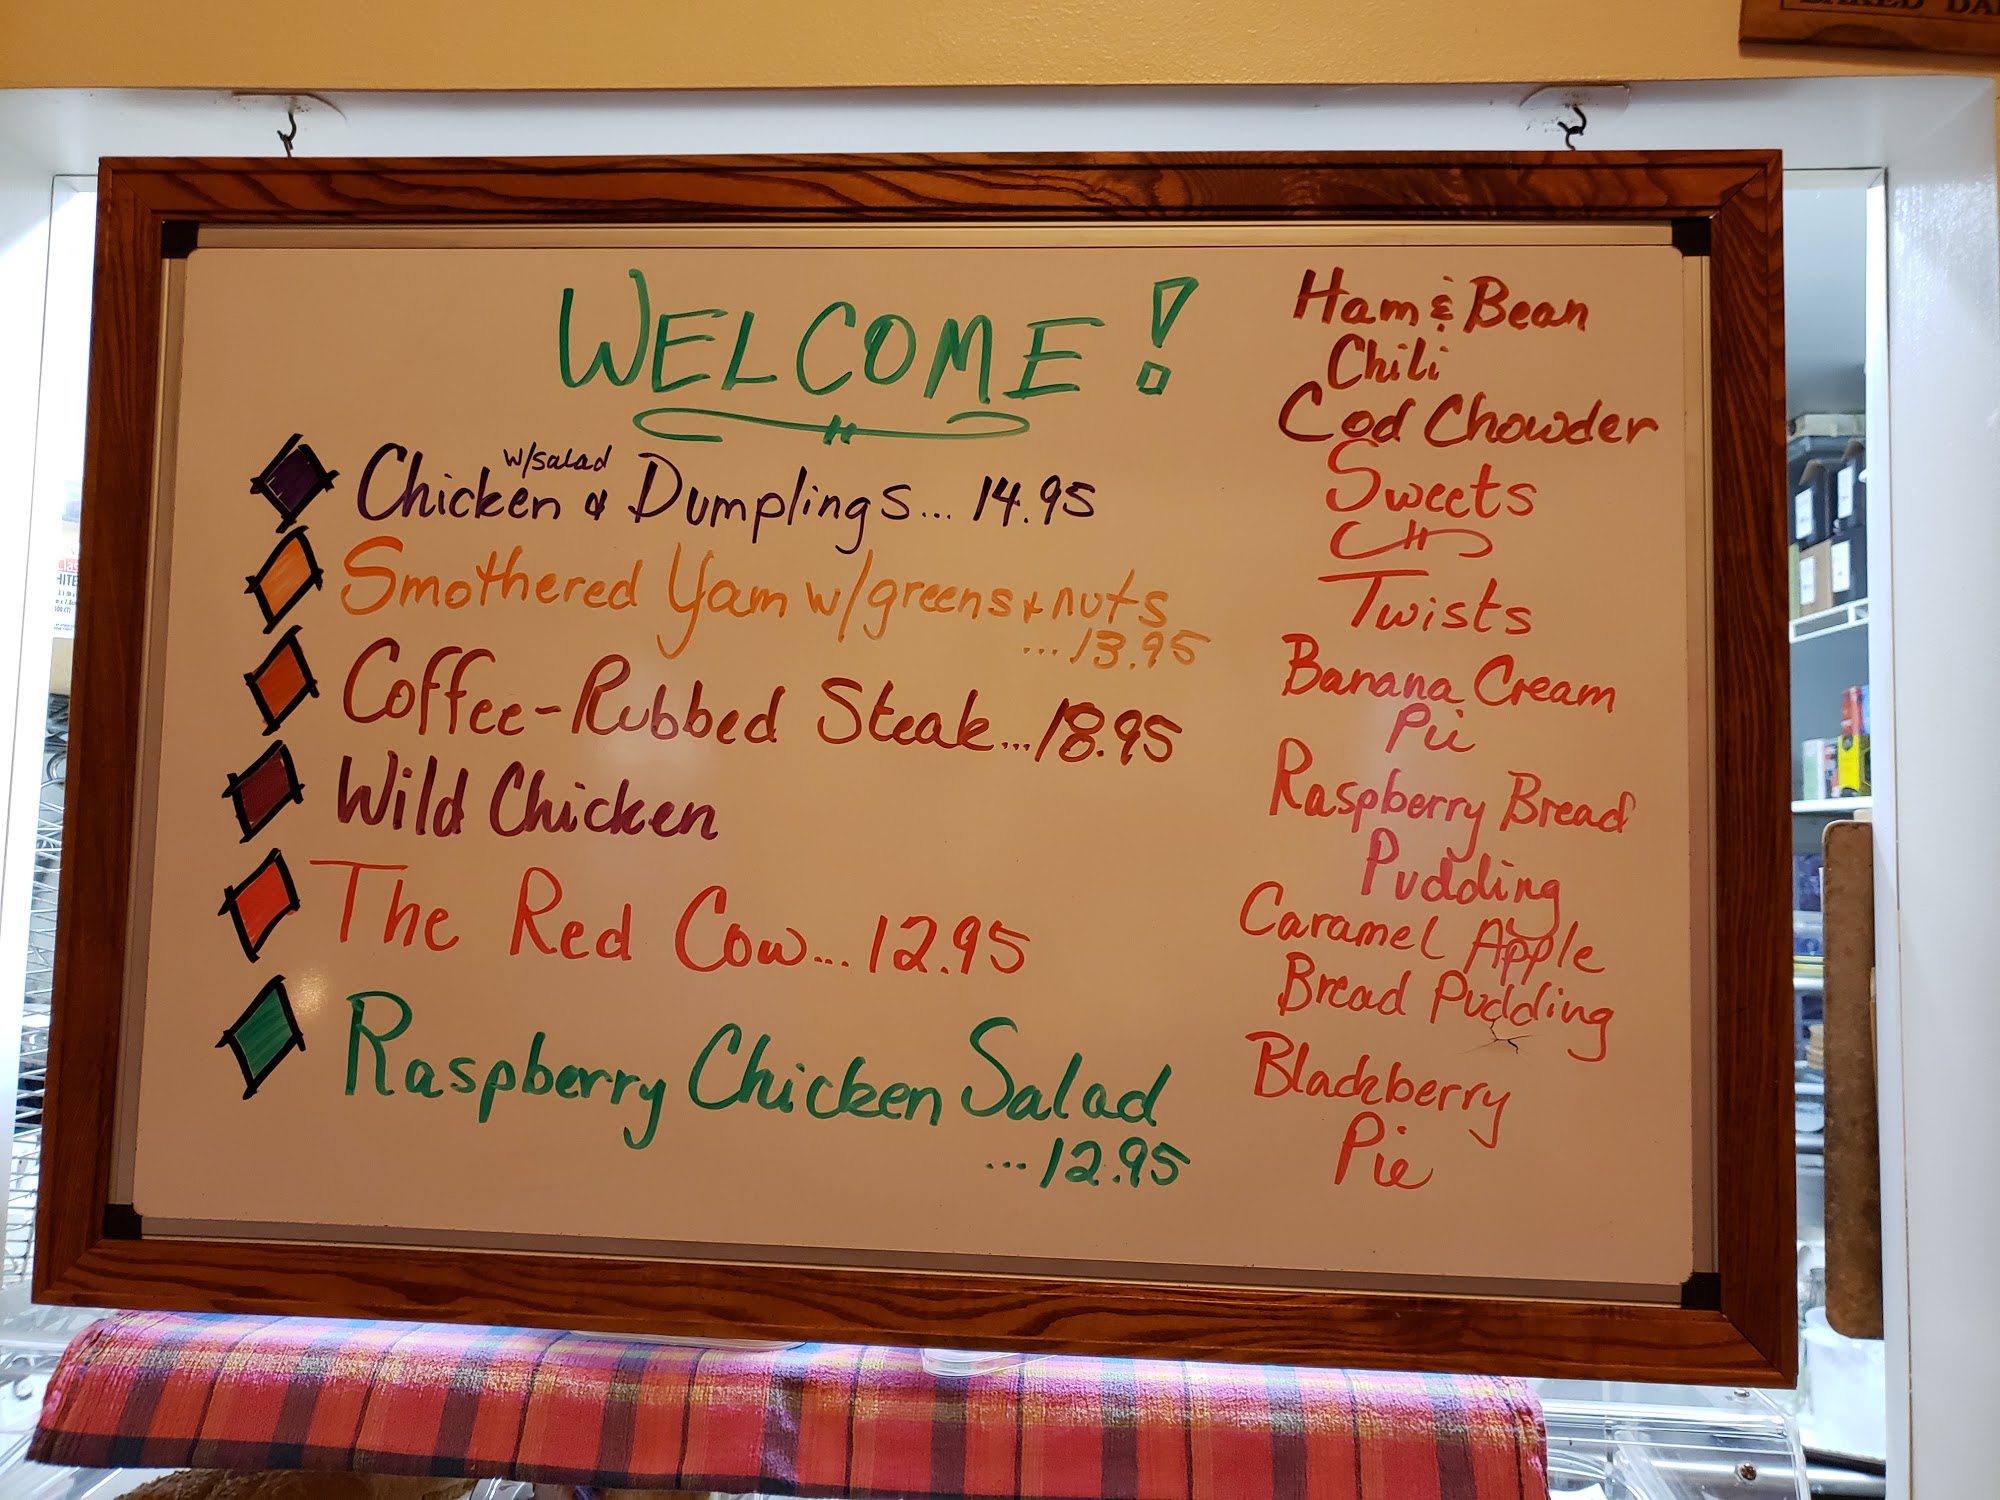 WELCOME!
Chicken w/salad & Dumplings... 14.95
Smothered Yam w/greens + nuts
...13.95
Coffee-Rubbed Steak...18.95
Wild Chicken
The Red Cow...12.95
Raspberry Chicken Salad
...12.95
Ham & Bean
Chili
Cod Chowder
Sweets
Twists
Banana Cream
Pie
Raspberry Bread
Pudding
Caramel Apple
Bread Pudding
Blackberry
Pie